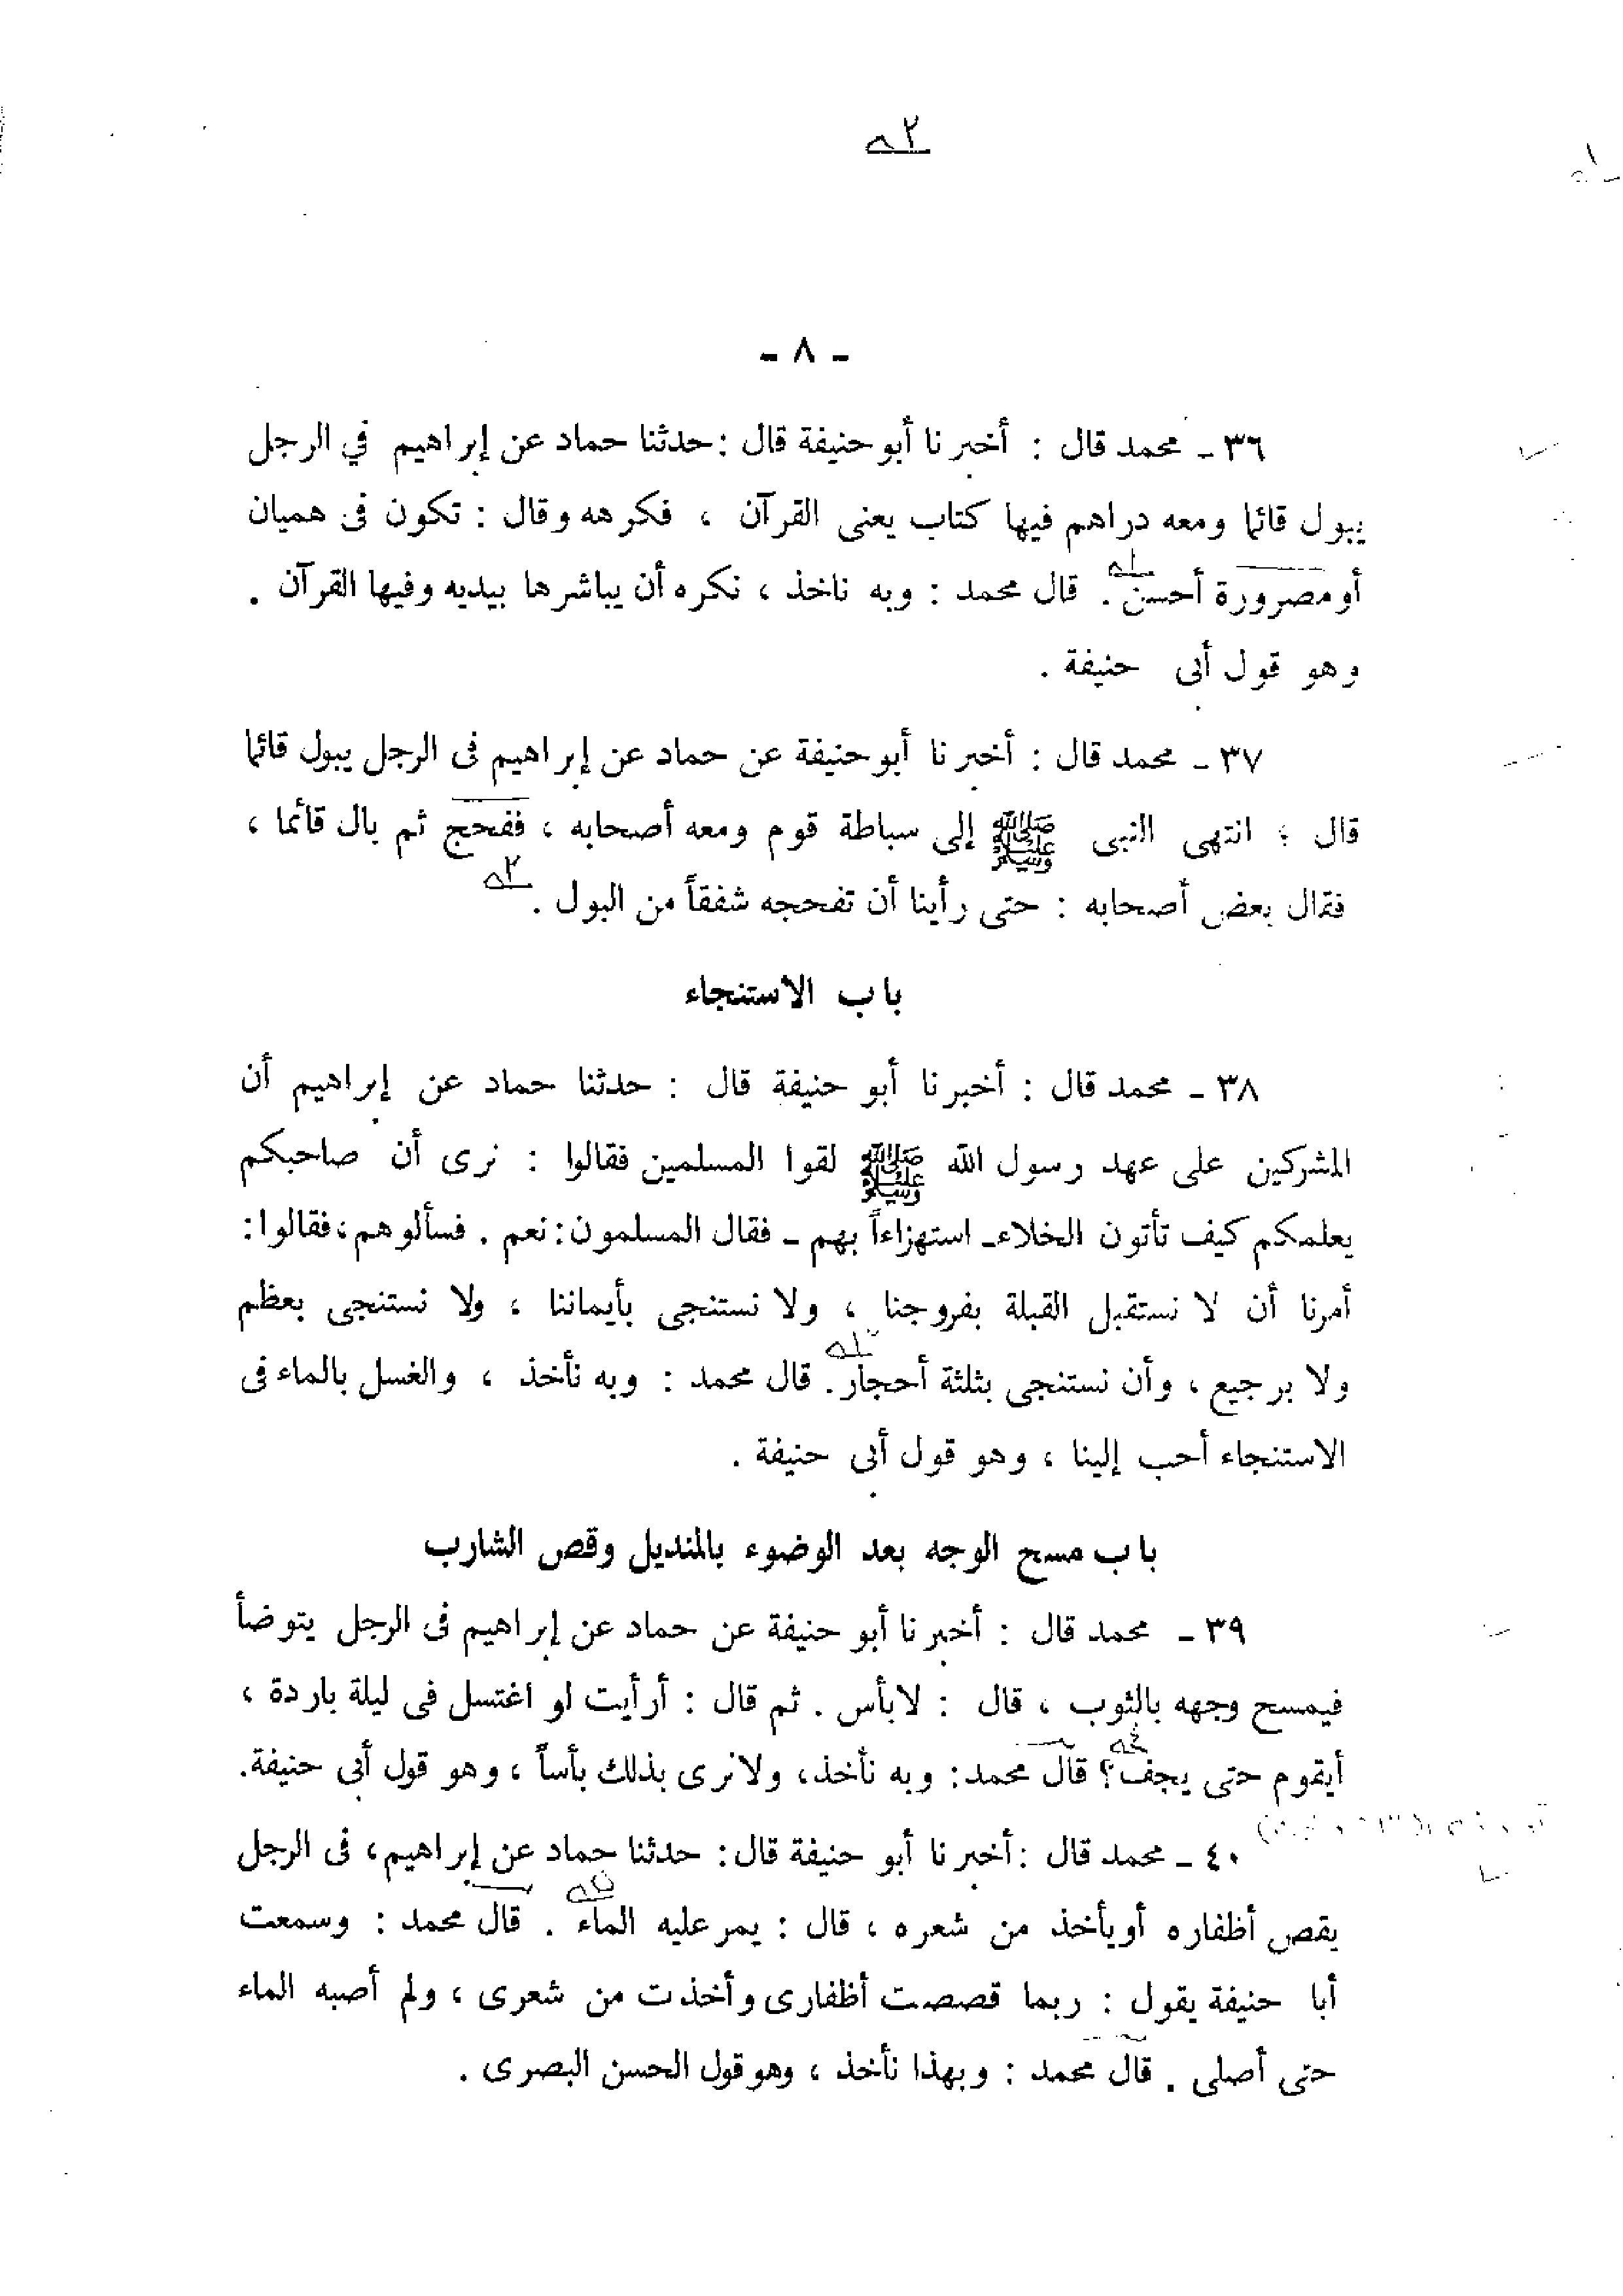 - ٨ -
٣٦ - محمد قال : أخبرنا أبو حنيفة قال : حدثنا حماد عن إبراهيم في الرجل
يبول قائما ومعه دراهم فيها كتاب يعنى القرآن ، فكرهه وقال : تكون فى هميان
أو مصرورة أحسن . قال محمد : وبه ناخذ ، نكره أن يباشرها بيديه وفيها القرآن .
وهو قول أبى حنيفة .
٣٧ - محمد قال : أخبرنا أبو حنيفة عن حماد عن إبراهيم فى الرجل يبول قائما
قال : انتهى النبى ﷺ إلى سباطة قوم ومعه أصحابه ، ففحج ثم بال قائما ،
فقال بعض أصحابه : حتى رأينا أن تفحجه شفقاً من البول .
باب الاستنجاء
٣٨ - محمد قال : أخبرنا أبو حنيفة قال : حدثنا حماد عن إبراهيم أن
المشركين على عهد رسول الله ﷺ لقوا المسلمين فقالوا : نرى أن صاحبكم
يعلمكم كيف تأتون الخلاء - استهزاءاً بهم - فقال المسلمون : نعم . فسألوهم ، فقالوا :
أمرنا أن لا نستقبل القبلة بفروجنا ، ولا نستنجى بأيماننا ، ولا نستنجى بعظم
ولا برجيع ، وأن نستنجى بثلثة أحجار . قال محمد : وبه نأخذ ، والغسل بالماء فى
الاستنجاء أحب إلينا ، وهو قول أبى حنيفة .
باب مسح الوجه بعد الوضوء بالمنديل وقص الشارب
٣٩ - محمد قال : أخبرنا أبو حنيفة عن حماد عن إبراهيم فى الرجل يتوضأ
فيمسح وجهه بالثوب ، قال : لابأس . ثم قال : أرأيت لو اغتسل فى ليلة باردة ،
أيقوم حتى يجف ؟ قال محمد : وبه نأخذ ، ولا نرى بذلك بأساً ، وهو قول أبى حنيفة .
٤٠ - محمد قال : أخبرنا أبو حنيفة قال : حدثنا حماد عن إبراهيم ، فى الرجل
يقص أظفاره أو يأخذ من شعره ، قال : يمر عليه الماء . قال محمد : وسمعت
أبا حنيفة يقول : ربما قصصت أظفارى وأخذت من شعرى ، ولم أصبه الماء
حتى أصلى . قال محمد : وبهذا نأخذ ، وهو قول الحسن البصرى .